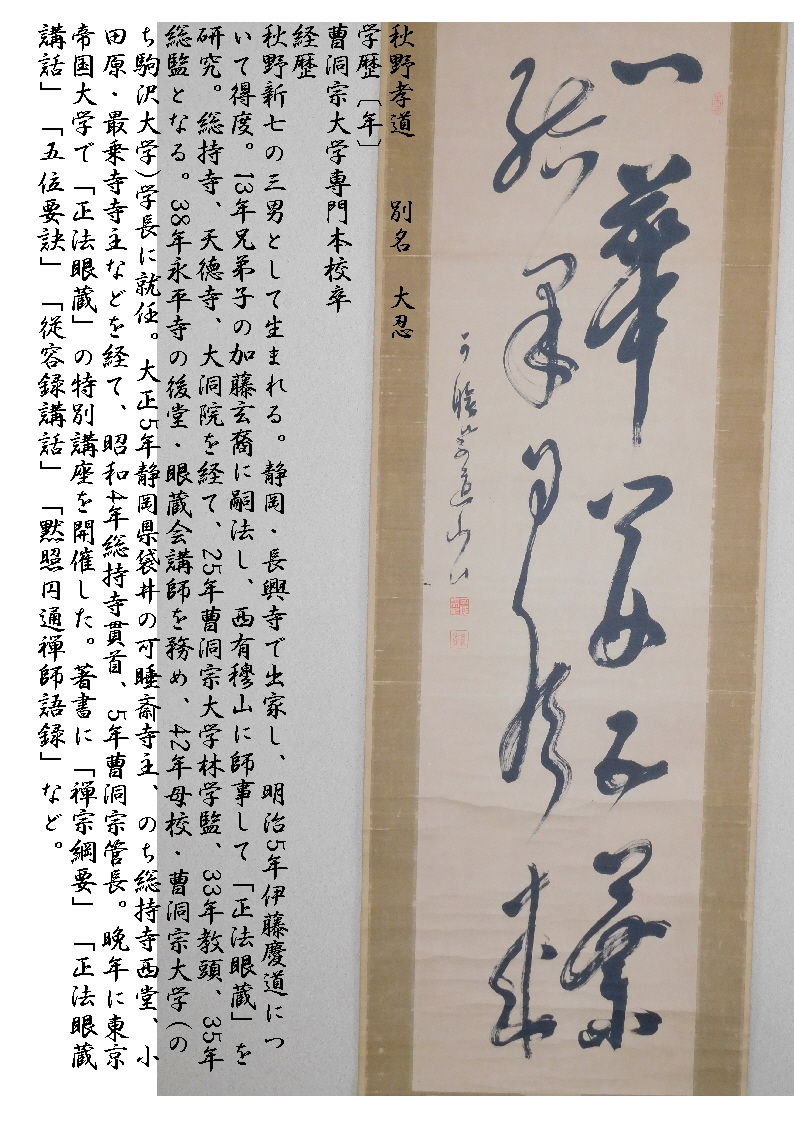 一華開五葉
結果自然成
可睡孝道
秋野孝道　別名　大忍
学歴〔年〕
曹洞宗大学専門本校卒
経歴
秋野新七の三男として生まれる。静岡・長興寺で出家し、明治5年伊藤慶道につ
いて得度。13年兄弟子の加藤玄裔に嗣法し、西有穆山に師事して「正法眼蔵」を
研究。総持寺、天徳寺、大洞院を経て、25年曹洞宗大学林学監、33年教頭、35年
総監となる。38年永平寺の後堂・眼蔵会講師を務め、42年母校・曹洞宗大学(の
ち駒沢大学)学長に就任。大正5年静岡県袋井の可睡斎寺主、のち総持寺西堂、小
田原・最乗寺寺主などを経て、昭和4年総持寺貫首、5年曹洞宗管長。晩年に東京
帝国大学で「正法眼蔵」の特別講座を開催した。著書に「禅宗綱要」「正法眼蔵
講話」「五位要訣」「従容録講話」「黙照円通禅師語録」など。